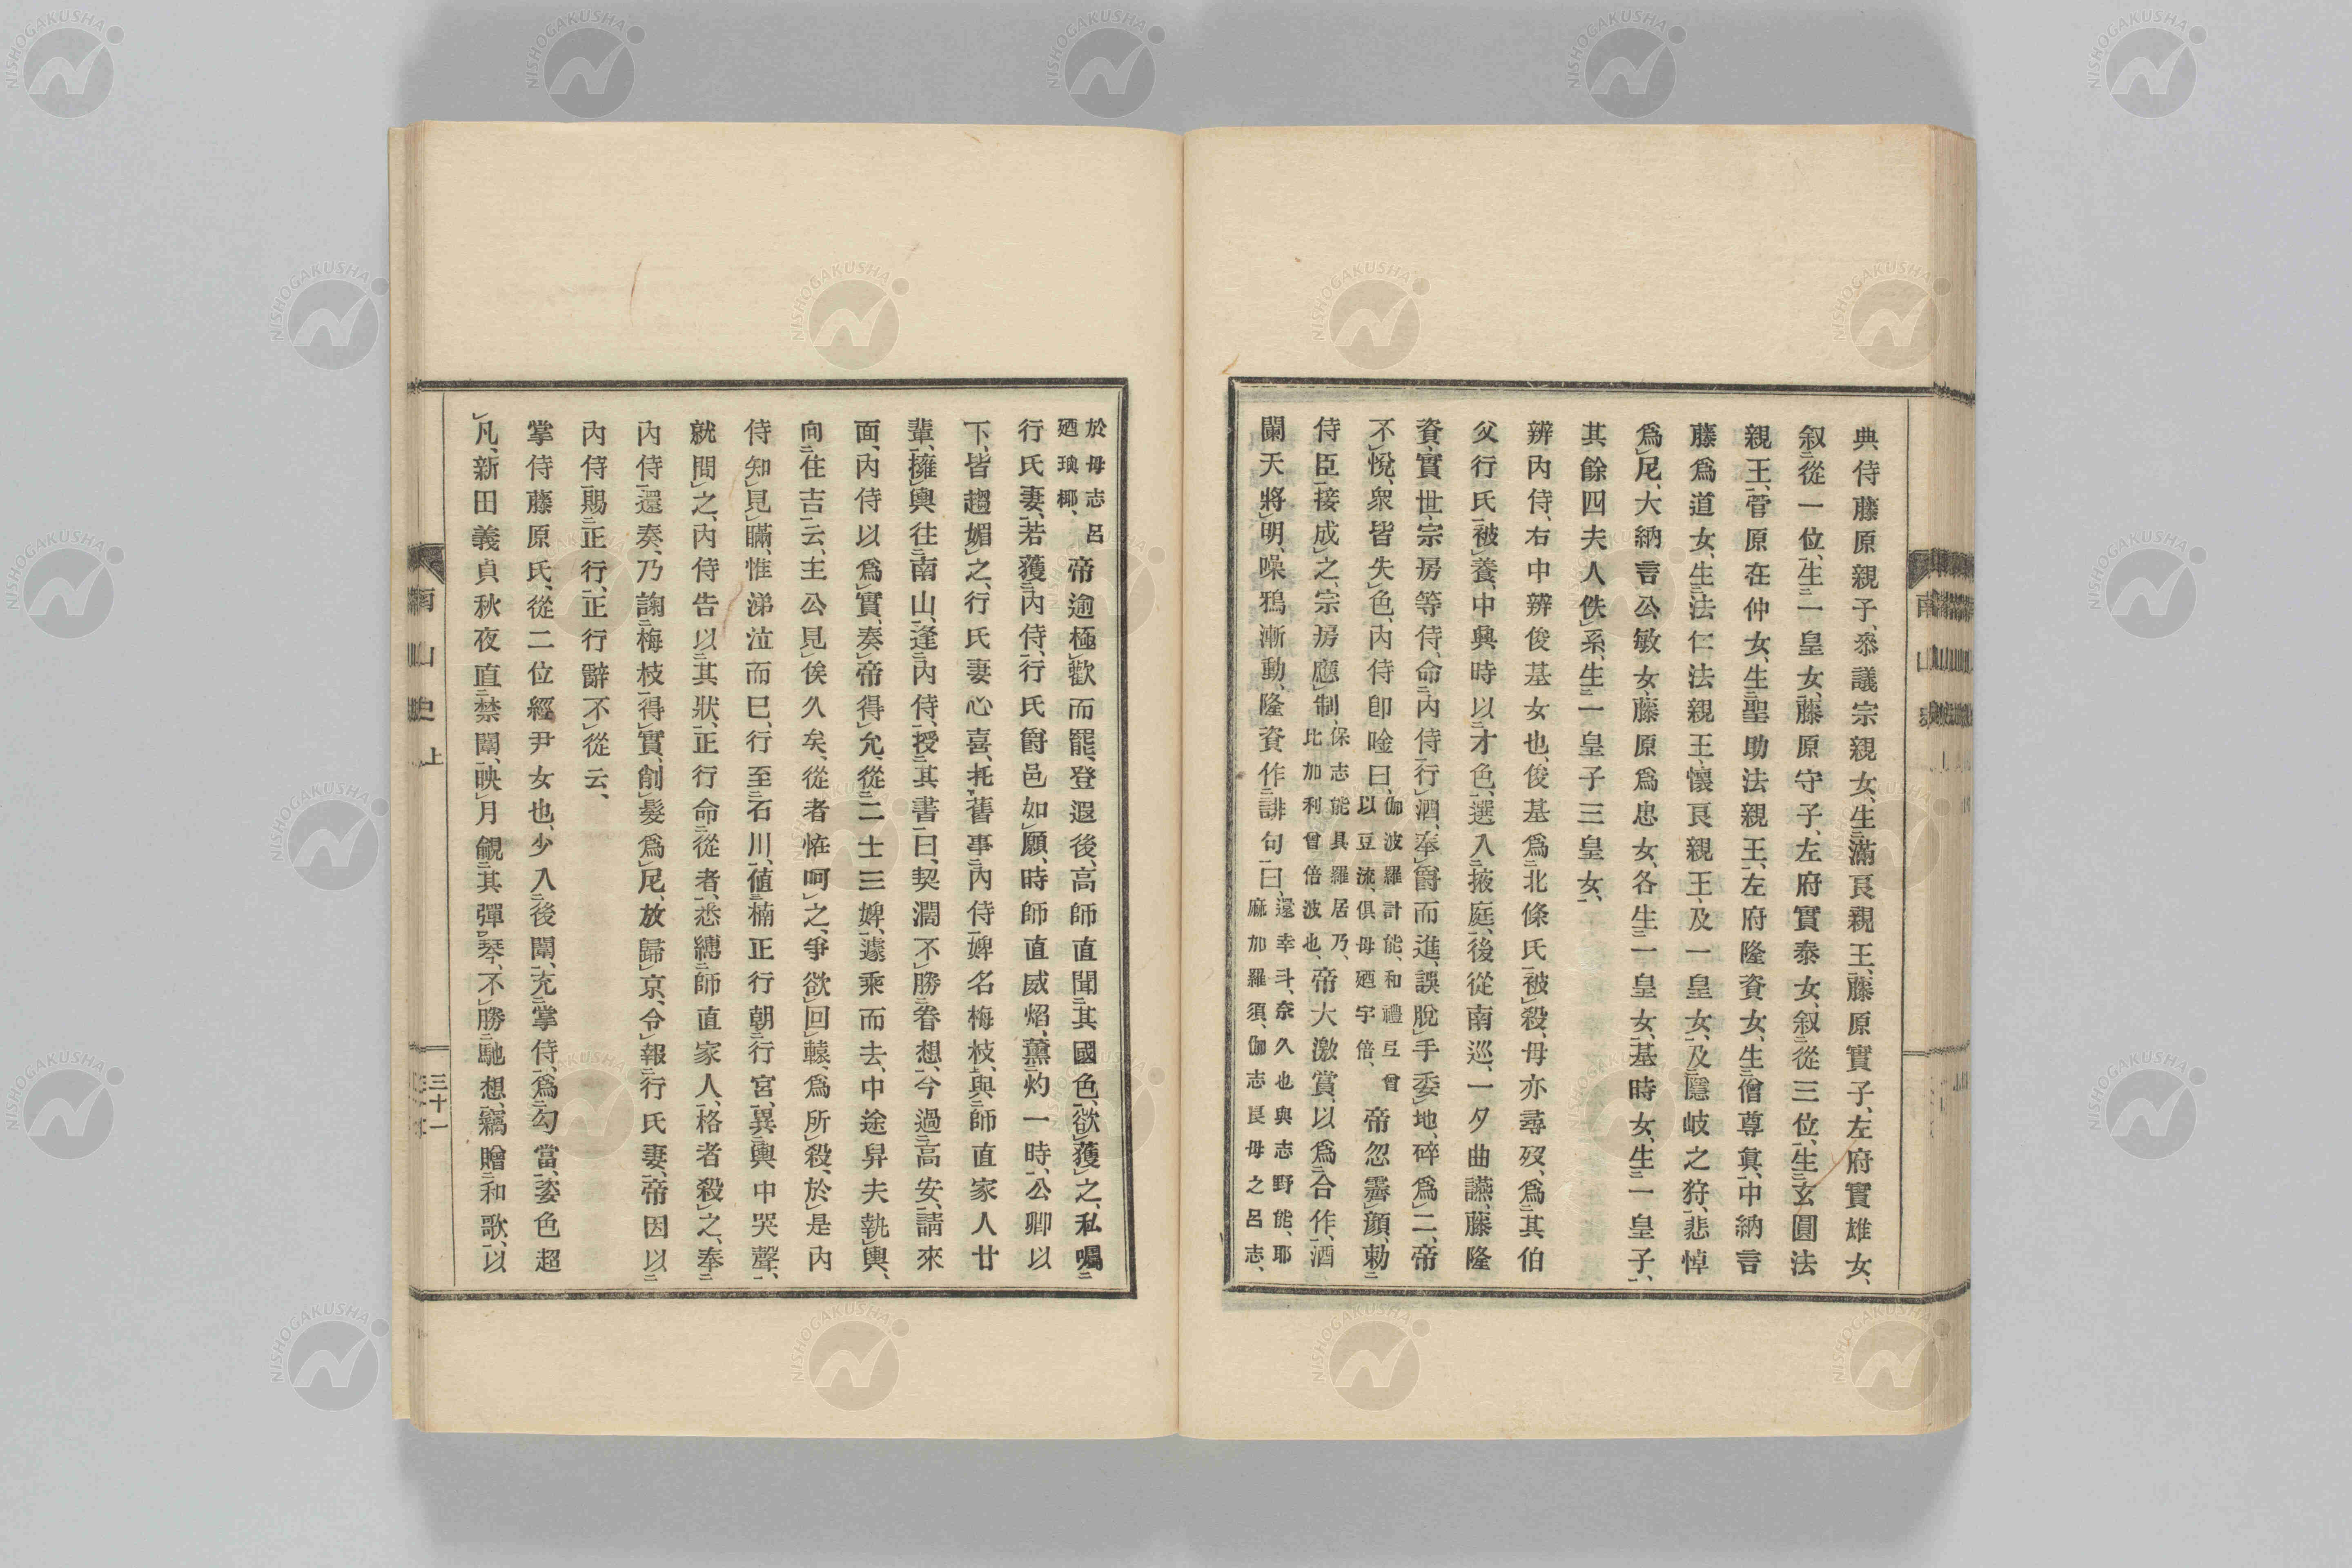 典侍藤原親子、參議宗親女、生滿良親王、藤原實子、左府實雄女、
叙從一位、生一皇女、藤原守子、左府實泰女、叙從三位、生玄圓法
親王、菅原在仲女、生聖助法親王、左府隆資女、生僧尊眞、中納言
藤爲道女、生法仁法親王、懷良親王、及一皇女、及隱岐之狩、悲悼
爲尼、大納言公敏女、藤原爲忠女、各生一皇女、基時女、生一皇子、
其餘四夫人佚系、生一皇子三皇女、
辨內侍、右中辨俊基女也、俊基爲北條氏被殺、母亦尋歿、爲其伯
父行氏被養、中興時以才色、選入掖庭、後從南巡、一夕曲讌、藤隆
資、實世、宗房等侍、命內侍行酒、奉爵而進、誤脫手委地、碎爲二、帝
不悅、衆皆失色、內侍卽唫曰、伽波羅計能、和禮旦曾以豆流、俱母廼宇倍、帝忽霽顏、勅
侍臣接成之、宗房應制、保志能具羅居乃、比加利曾倍波也、帝大激賞、以爲合作、酒
闌天將明、噪鴉漸動、隆資作誹句曰、還幸斗、奈久也與志野能、耶麻加羅須、伽志良母之呂志、
於毋志呂廼璵椰、帝逾極歡而罷、登遐後、高師直聞其國色、欲獲之、私囑
行氏妻、若獲內侍、行氏爵邑如願、時師直威焰、薰灼一時、公卿以
下、皆趨媚之、行氏妻心喜、托舊事內侍婢名梅枝、與師直家人廿
輩、擁輿往南山、逢內侍、授其書曰、契濶不勝眷想、今過高安、請來
面、內侍以爲實、奏帝得允、從二士三婢、遽乘而去、中途舁夫執輿、
向住吉云、主公見俟久矣、從者恠呵之、爭欲回轅、爲所殺、於是內
侍知見瞞、惟涕泣而已、行至石川、値楠正行朝行宮、異輿中哭聲、
就問之、內侍告以其狀、正行命從者、悉縛師直家人、格者殺之、奉
內侍還奏、乃詢梅枝得實、削髮爲尼、放歸京、令報行氏妻、帝因以
內侍賜正行、正行辭不從云、
掌侍藤原氏、從二位經尹女也、少入後闈、充掌侍、爲勾當、姿色超
凡、新田義貞秋夜直禁闈、映月覦其彈琴、不勝馳想、竊贈和歌、以
南山史 上
三十一